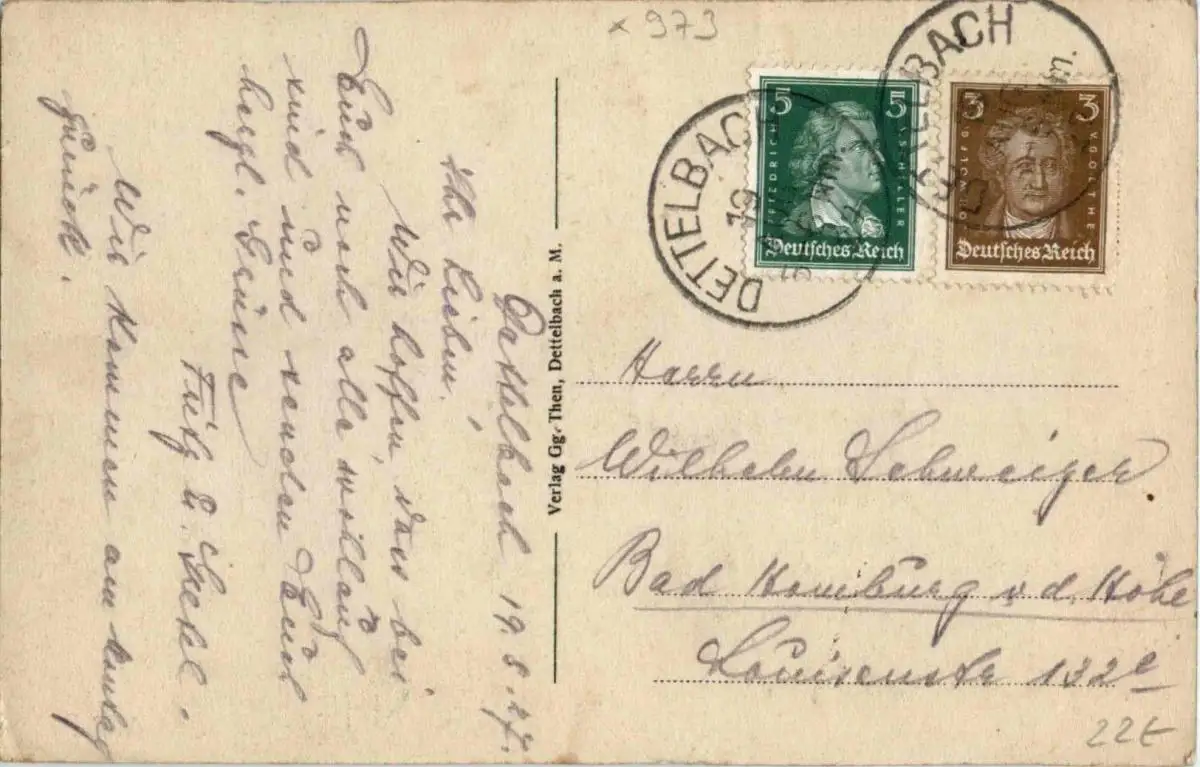 × 973
DETTELBACH
19
DETTELBACH
5 5
FRIEDRICH
V. SCHILLER
Deutsches Reich
3 3
WOLFG.
V. GOETHE
Deutsches Reich
Verlag Gg. Then, Dettelbach a. M.
Dettelbach 19.8.27.
Ihr Lieben!
Wir hoffen, dass bei
Euch noch alle wohlauf
sind und senden Euch
herzl. Grüsse
Wir kommen am
zurück.
Herrn
Wilhelm Schweiger
Bad Homburg v. d. Höhe
Louisenstr 132c
22t